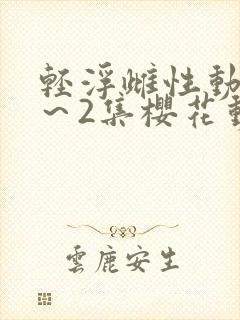 輕浮雌性動
~2集櫻花動
雲鹿安生